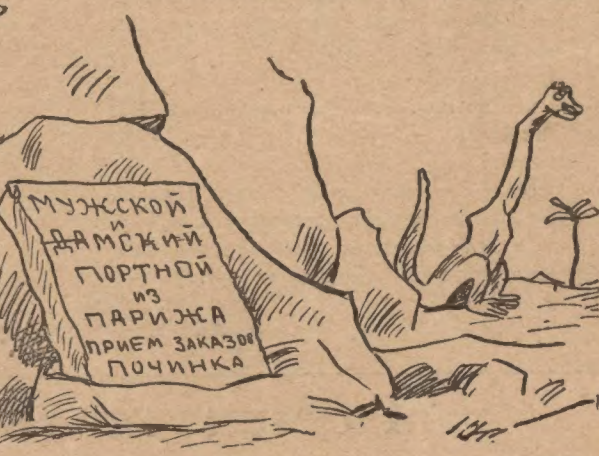 МУЖСКОЙ
И
ДАМСКИЙ
ПОРТНОЙ
ИЗ
ПАРИЖА
ПРИЕМ ЗАКАЗОВ
ПОЧИНКА